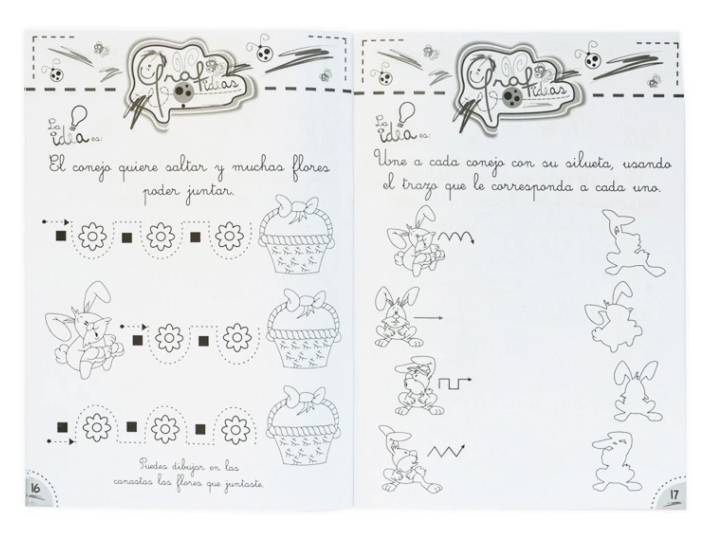 Grafideas
La
idea es:
El conejo quiere saltar y muchas flores
poder juntar.
Puedes dibujar en las
canastas las flores que juntaste.
16
Grafideas
La
idea es:
Une a cada conejo con su silueta, usando
el trazo que le corresponda a cada uno.
17